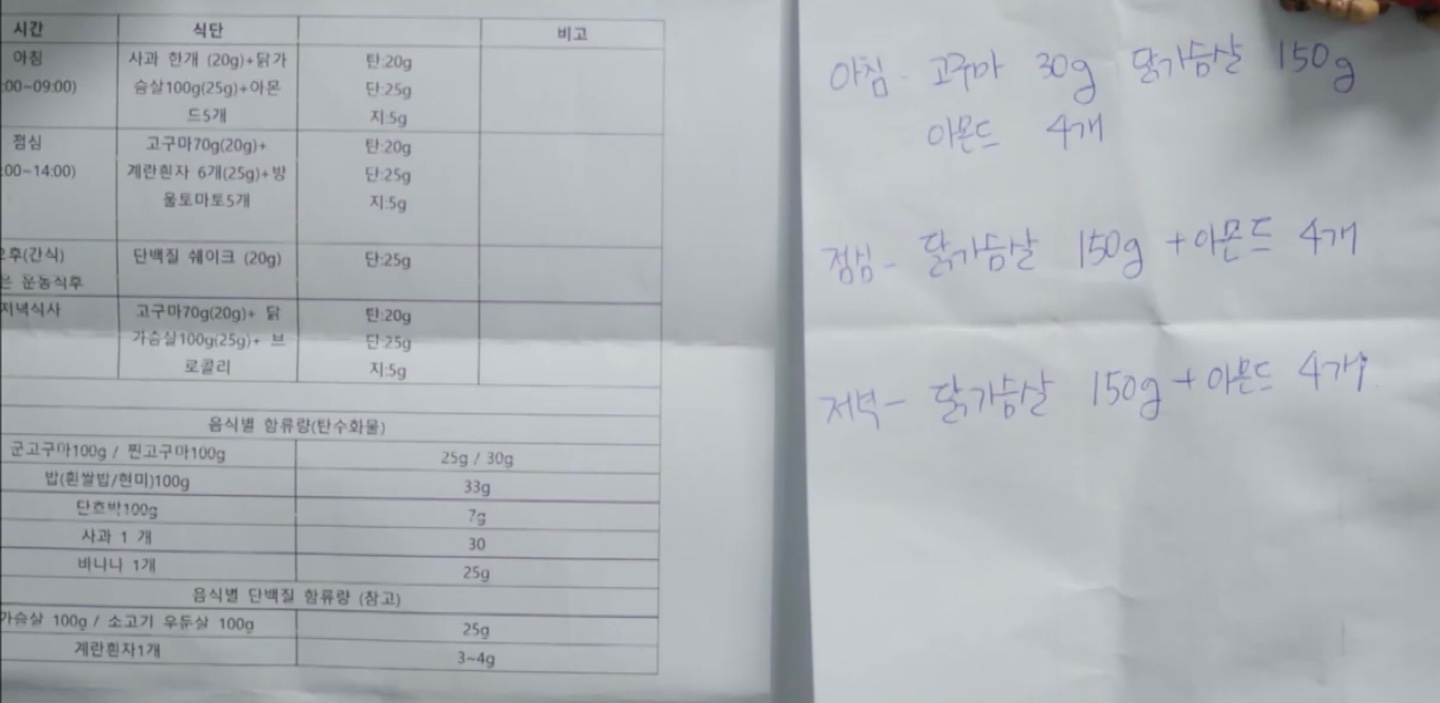 시간 식단 비고
아침 사과 한개 (20g)+닭가 탄:20g
:00~09:00) 슴살100g(25g)+아몬 단:25g
드5개 지:5g
점심 고구마70g(20g)+ 탄:20g
:00~14:00) 계란흰자 6개(25g)+방 단:25g
울토마토5개 지:5g
후(간식) 단백질 쉐이크 (20g) 단:25g
은 운동직후
저녁식사 고구마70g(20g)+ 닭 탄:20g
가슴살100g(25g)+ 브 단:25g
로콜리 지:5g
음식별 함류량(탄수화물)
군고구마100g / 찐고구마100g 25g / 30g
밥(흰쌀밥/현미)100g 33g
단호박100g 7g
사과 1 개 30
바나나 1개 25g
음식별 단백질 함류량 (참고)
가슴살 100g / 소고기 우둔살 100g 25g
계란흰자1개 3~4g
아침 - 고구마 30g 닭가슴살 150g
아몬드 4개
점심 - 닭가슴살 150g + 아몬드 4개
저녁 - 닭가슴살 150g + 아몬드 4개